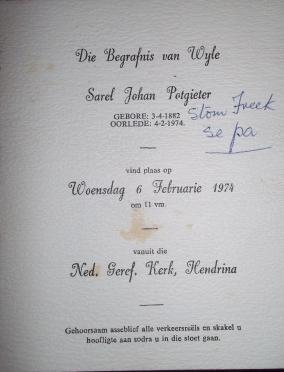 Die Begrafnis van Wyle
Sarel Johan Potgieter
GEBORE: 3-4-1882
OORLEDE: 4-2-1974.
Stom Freek
se pa
vind plaas op
Woensdag 6 Februarie 1974
om 11 vm.
vanuit die
Ned. Geref. Kerk, Hendrina
Gehoorsaam asseblief alle verkeersreëls en skakel u
hoofligte aan sodra u in die stoet gaan.